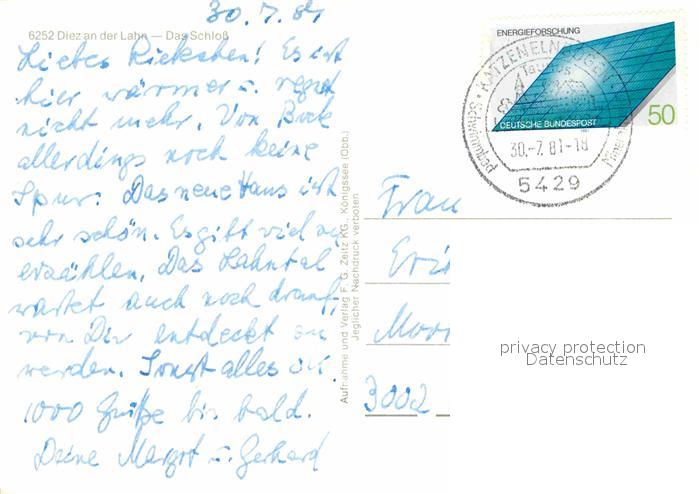 30.7.81
6252 Diez an der Lahn — Das Schloß
Liebes Riekchen! Es ist
hier wärmer u. regnet
nicht mehr. Von Bock
allerdings noch keine
Spur. Das neue Haus ist
sehr schön. Es gibt viel zu
erzählen. Das Lahntal
wartet auch noch drauf,
von Dir entdeckt zu
werden. Sonst alles
1000 Grüße bis bald.
Deine Margot u. Gerhard
Aufnahme und Verlag F. G. Zeitz KG., Königssee (Obb.)
Jeglicher Nachdruck verboten
ENERGIEFORSCHUNG
DEUTSCHE BUNDESPOST
50
1981
KATZENELNBOGEN
Taunus
Schwimmbad
Mineral
30.-7.81-18
5429
Frau
3002
privacy protection
Datenschutz